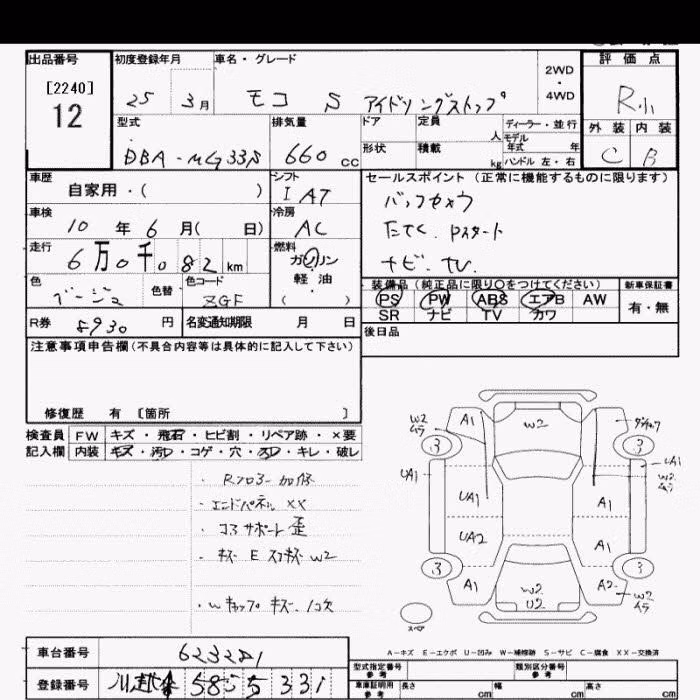 出品番号
[2240]
12
初度登録年月
25 3月
車名・グレード
モコ S アイドリングストップ
2WD
・
4WD
評価点
R小
外装 内装
C B
型式
DBA-MG33S
排気量
660 cc
ドア
定員
人
ディーラー・並行
モデル
年式 年
形状
積載
kg
ハンドル 左・右
車歴
自家用・( )
シフト
I AT
セールスポイント (正常に機能するものに限ります)
バックカメラ
たてく Pスタート
ナビ. TV.
車検
10年 6月( 日)
冷房
AC
走行
6万0千082km
燃料
ガソリン
軽油
( )
色
ベージュ
色替
色コード
ZGF
装備品(純正品に限り○をつけてください)
PS PW ABS エアB AW
SR ナビ TV カワ
新車保証書
有・無
R券 8930 円
名変通知期限 月 日
後日品
注意事項申告欄(不具合内容等は具体的に記入して下さい)
修復歴 有 [箇所 ]
検査員
記入欄
FW キズ・飛石・ヒビ割・リペア跡・×要
内装 キズ・汚レ・コゲ・穴・スレ・キレ・破レ
・Rフロアー加修
・エンドパネル XX
・コアサポート歪
・キズ E スリキズ W2
・Wキャップ キズ
A1
W2
W2
ムラ
3
3
UA1
UA1
W2
ムラ
UA1
A1
UA2
A1
3
3
A1
W2
U2
A2
W2
ムラ
スペア
A-キズ E-エクボ U-凹み W-補修跡 S-サビ C-腐食 XX-交換済
車台番号
623281
登録番号
川越 58 5 5 331
型式指定番号
参考
類別区分番号
参考
車庫証明用
参考
長さ cm
幅 cm
高さ cm